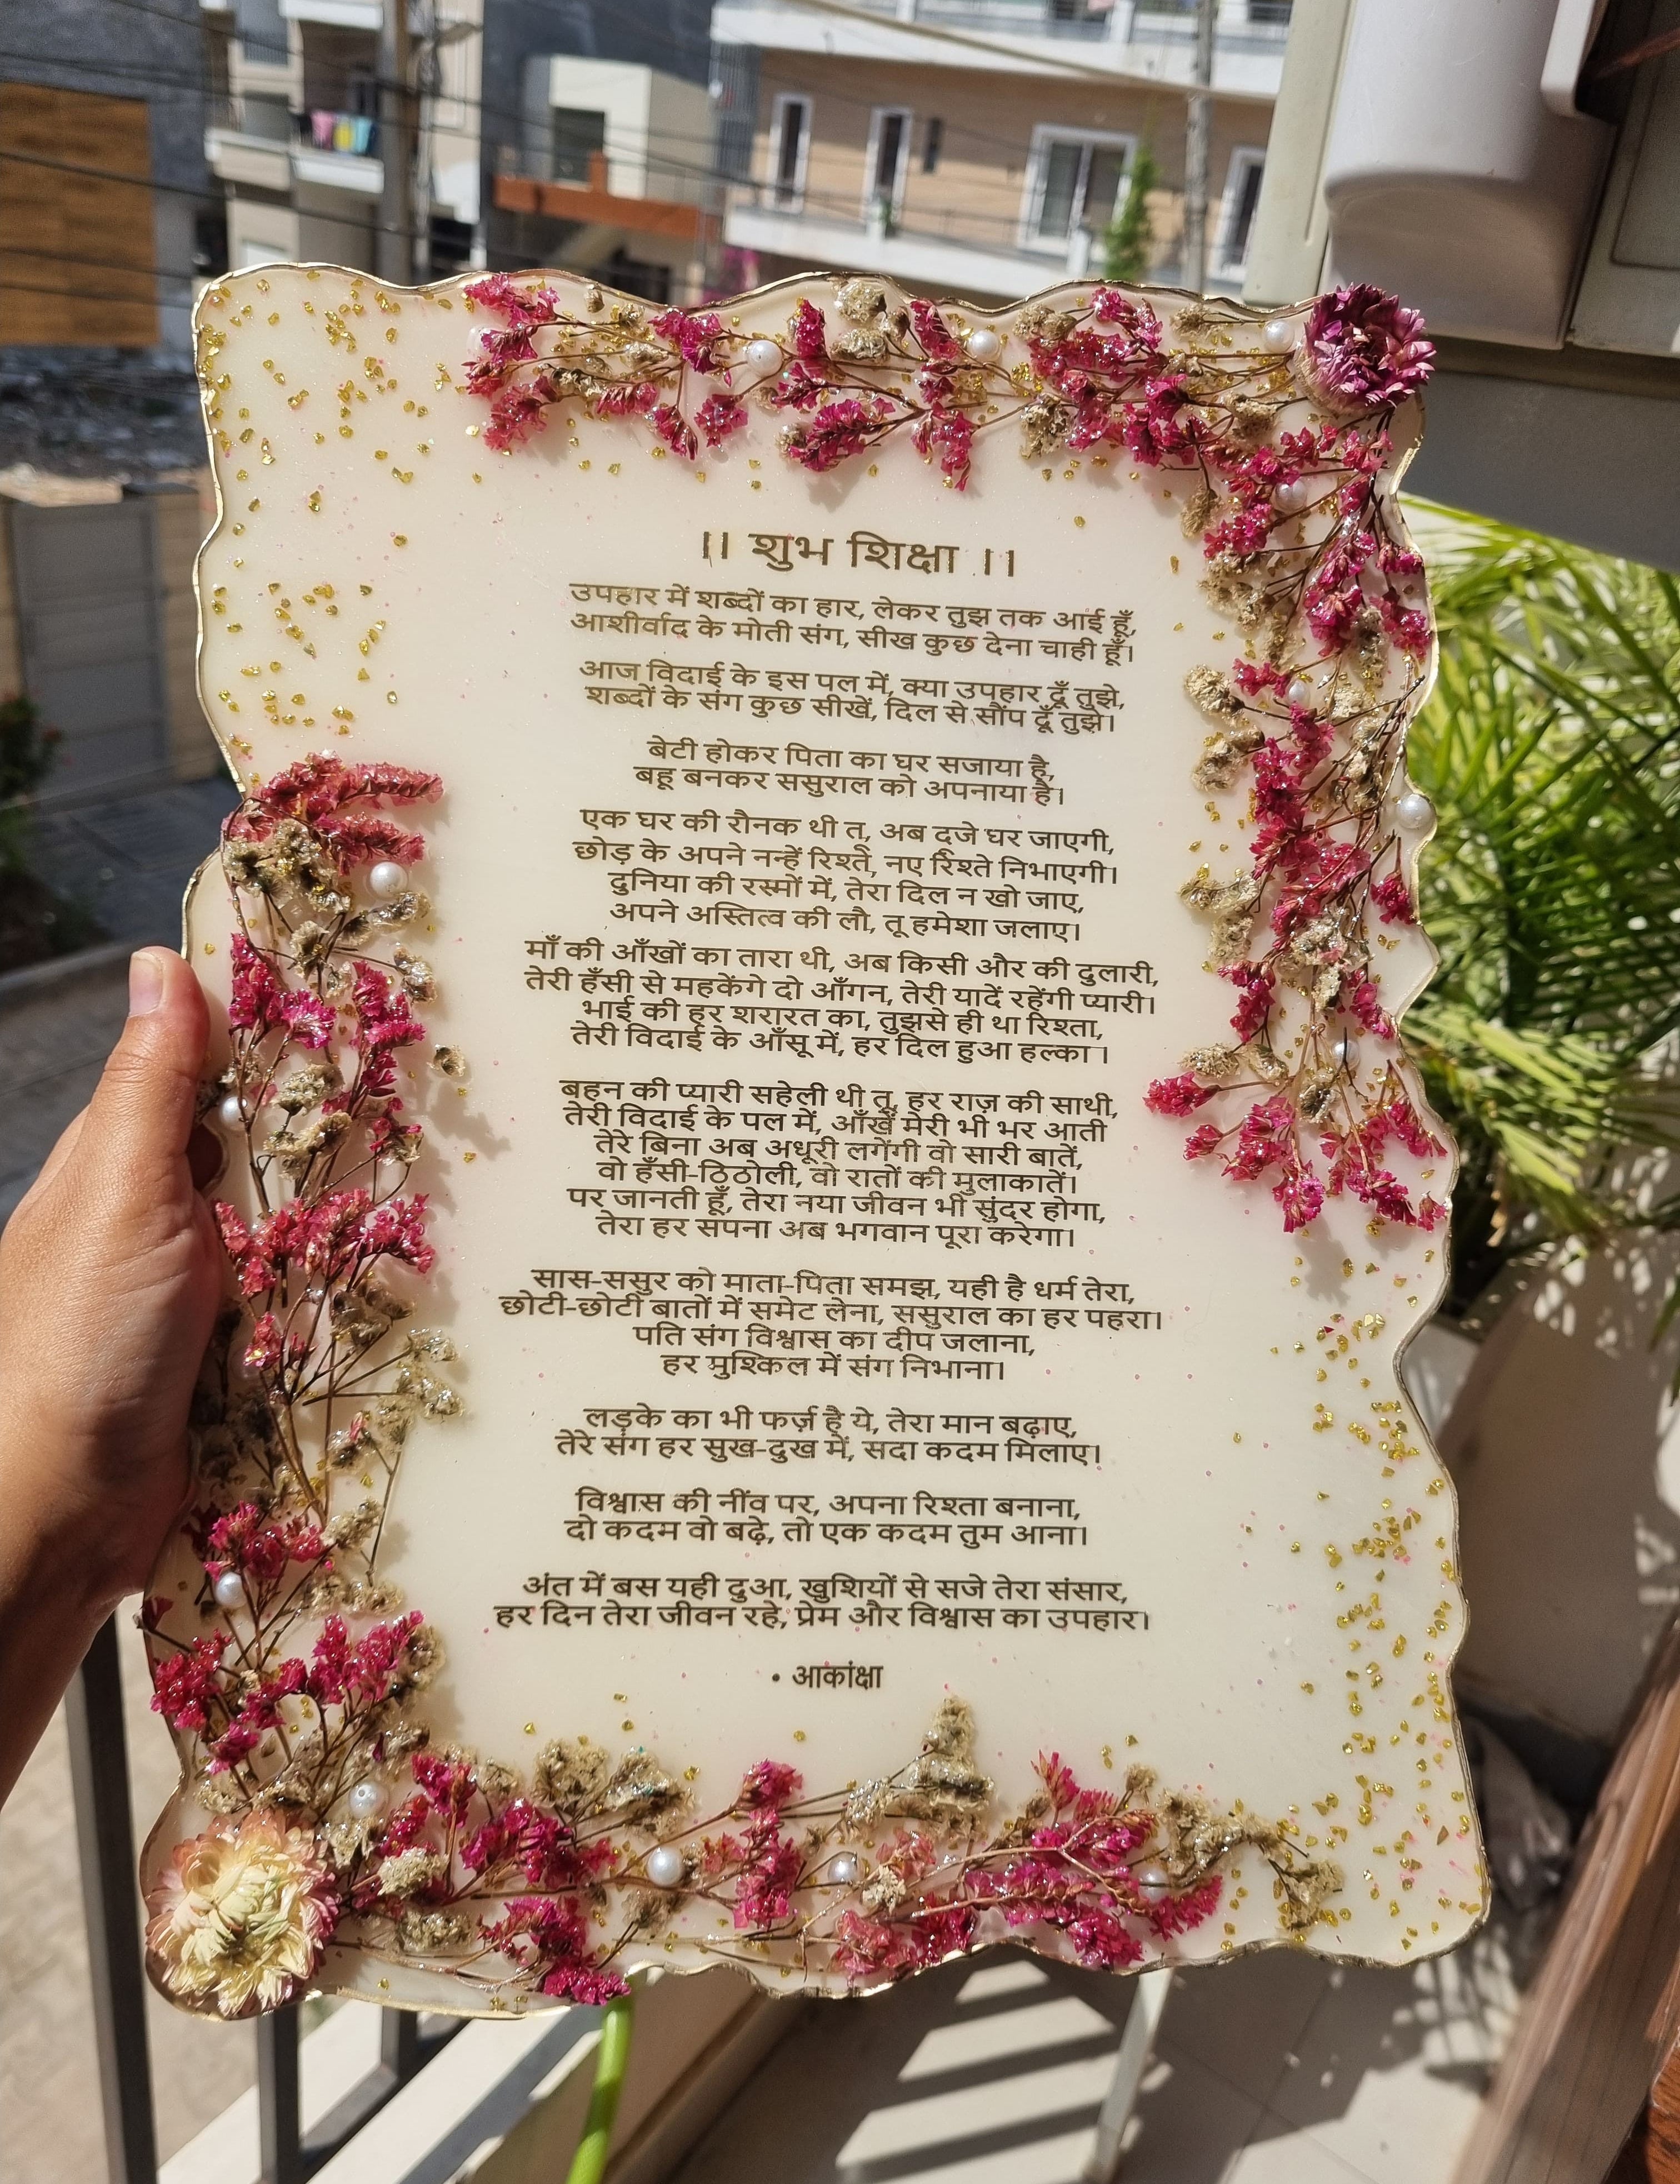 ।। शुभ शिक्षा ।।
उपहार में शब्दों का हार, लेकर तुझ तक आई हूँ,
आशीर्वाद के मोती संग, सीख कुछ देना चाही हूँ।
आज विदाई के इस पल में, क्या उपहार दूँ तुझे,
शब्दों के संग कुछ सीखें, दिल से सौंप दूँ तुझे।
बेटी होकर पिता का घर सजाया है,
बहू बनकर ससुराल को अपनाया है।
एक घर की रौनक थी तू, अब दूजे घर जाएगी,
छोड़ के अपने नन्हें रिश्ते, नए रिश्ते निभाएगी।
दुनिया की रस्मों में, तेरा दिल न खो जाए,
अपने अस्तित्व की लौ, तू हमेशा जलाए।
माँ की आँखों का तारा थी, अब किसी और की दुलारी,
तेरी हँसी से महकेंगे दो आँगन, तेरी यादें रहेंगी प्यारी।
भाई की हर शरारत का, तुझसे ही था रिश्ता,
तेरी विदाई के आँसू में, हर दिल हुआ हल्का।
बहन की प्यारी सहेली थी तू, हर राज़ की साथी,
तेरी विदाई के पल में, आँखें मेरी भी भर आती
तेरे बिना अब अधूरी लगेंगी वो सारी बातें,
वो हँसी-ठिठोली, वो रातों की मुलाकातें।
पर जानती हूँ, तेरा नया जीवन भी सुंदर होगा,
तेरा हर सपना अब भगवान पूरा करेगा।
सास-ससुर को माता-पिता समझ, यही है धर्म तेरा,
छोटी-छोटी बातों में समेट लेना, ससुराल का हर पहरा।
पति संग विश्वास का दीप जलाना,
हर मुश्किल में संग निभाना।
लड़के का भी फर्ज़ है ये, तेरा मान बढ़ाए,
तेरे संग हर सुख-दुख में, सदा कदम मिलाए।
विश्वास की नींव पर, अपना रिश्ता बनाना,
दो कदम वो बढ़े, तो एक कदम तुम आना।
अंत में बस यही दुआ, खुशियों से सजे तेरा संसार,
हर दिन तेरा जीवन रहे, प्रेम और विश्वास का उपहार।
• आकांक्षा